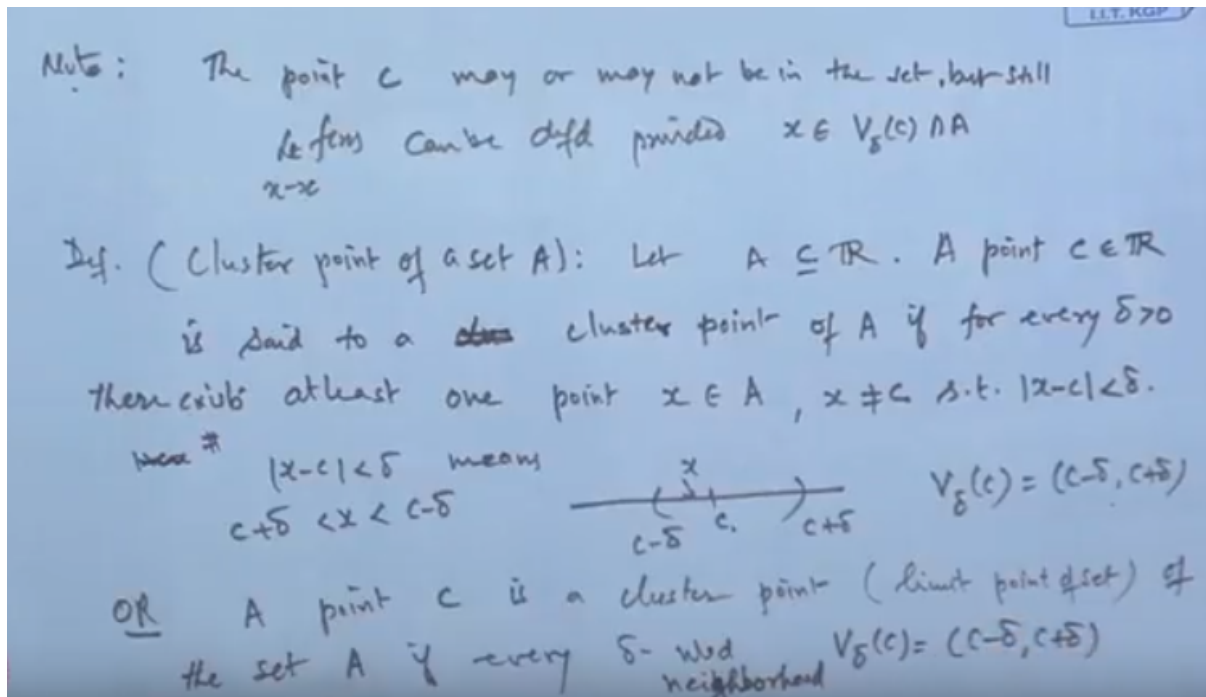 I.I.T. KGP
Note: The point c may or may not be in the set, but still
Lt f(x) can be defd provided x ∈ V_δ(c) ∩ A
x→c
Def. (Cluster point of a set A): Let A ⊆ ℝ. A point c ∈ ℝ
is said to a cluster point of A if for every δ>0
there exists atleast one point x ∈ A, x ≠ c s.t. |x-c|<δ.
|x-c|<δ means
x
c+δ < x < c-δ
V_δ(c) = (c-δ, c+δ)
c-δ c c+δ
OR A point c is a cluster point (limit point of set) of
the set A if every δ- nbd V_δ(c) = (c-δ, c+δ)
neighborhood